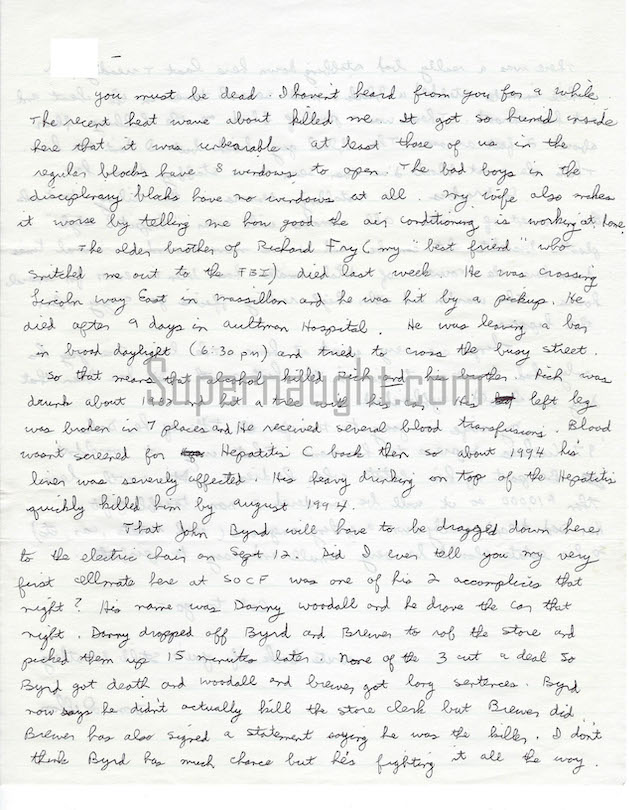 you must be dead. I haven't heard from you for a while.
The recent heat wave about killed me. It got so humid inside
here that it was unbearable. at least those of us in the
regular blocks have 8 windows to open. The bad boys in the
disciplinary blocks have no windows at all. My wife also makes
it worse by telling me how good the air conditioning is working at home.
The older brother of Richard Fry (my "best friend" who
snitched me out to the FBI) died last week. He was crossing
Lincoln Way East in Massillon and he was hit by a pickup. He
died after 9 days in Aultman Hospital. He was leaving a bar
in broad daylight (6:30 pm) and tried to cross the busy street.
So that means that alcohol killed Rich and his brother. Rich was
Supernaught.com
drunk about and hit a tree with his car. His left leg
was broken in 7 places and He received several blood transfusions. Blood
wasn't screened for Hepatitis C back then so about 1994 his
liver was severely affected. His heavy drinking on top of the Hepatitis
quickly killed him by august 1994.
That John Byrd will have to be dragged down here
to the electric chair on Sept 12. Did I ever tell you my very
first cellmate here at SOCF was one of his 2 accomplices that
night? His name was Danny Woodall and he drove the car that
night. Danny dropped off Byrd and Brewer to rob the store and
picked them up 15 minutes later. None of the 3 cut a deal so
Byrd got death and Woodall and Brewer got long sentences. Byrd
now says he didn't actually kill the store clerk but Brewer did.
Brewer has also signed a statement saying he was the killer. I don't
think Byrd has much chance but he's fighting it all the way.